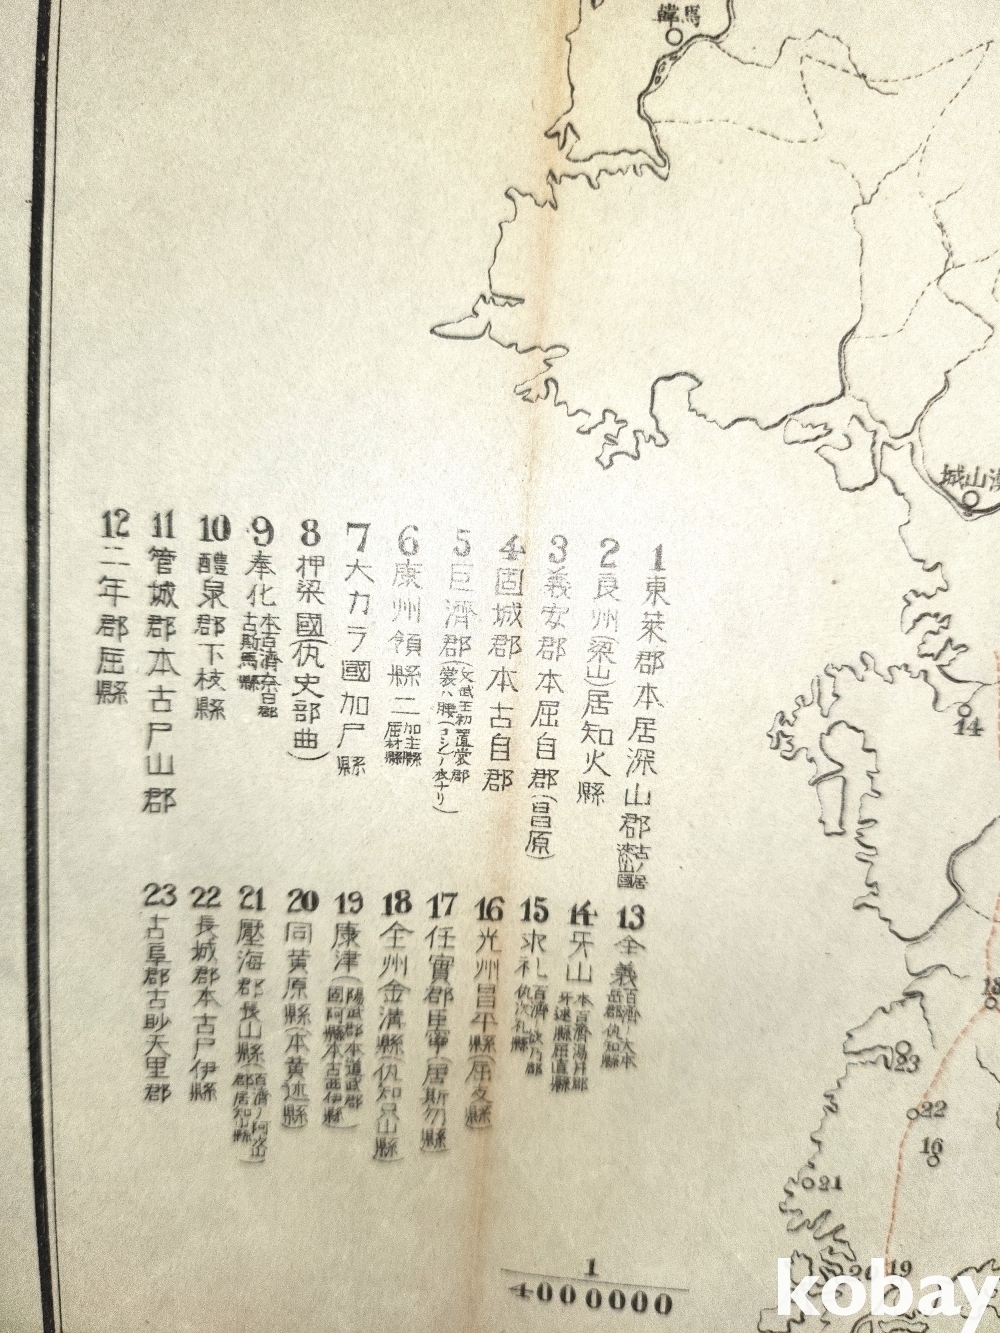 馬韓
漢山城
1 東萊郡本居深山郡 古ノ居漆山國
2 良州(梁山)居知火縣
3 義安郡本屈自郡(昌原)
4 固城郡本古自郡
5 巨濟郡(裳ハ腰(コシ)ノ衣ナリ) 文武王初置裳郡
6 康州領縣二 加主縣 屈村縣
7 大カラ國加尸縣
8 押梁國(仇史部曲)
9 奉化 本百濟奈已郡 古斯馬縣
10 醴泉郡下枝縣
11 管城郡本古尸山郡
12 二年郡屈縣
13 全義 百濟ノ大木岳郡仇知縣
14 牙山 本百濟湯井郡牙述縣屈直縣
15 求礼 百濟欲乃郡仇次礼縣
16 光州昌平縣(屈支縣)
17 任實郡(居斯勿縣)
18 全州金溝縣(仇知只山縣)
19 康津(陽武郡本道武郡 固阿縣本古西伊縣)
20 同黄原縣(本黄述縣)
21 壓海郡長山縣(百濟ノ 郡居知山縣)
22 長城郡本古尸伊縣
23 古阜郡古眇夫里郡
14
18
23
22
16
21
20
19
1
4000000
kobay